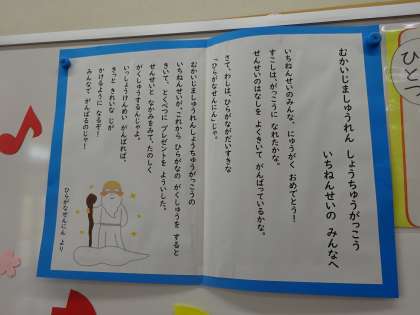 むかいじましゅうれん しょうちゅうがっこう
いちねんせいの みんなへ
いちねんせいのみんな、にゅうがく おめでとう！
すこしは、がっこうに なれたかな。
せんせいのはなしを よくきいて がんばっているかな。
さて、わしは、ひらがながだいすきな
「ひらがなせんにん」じゃ。
むかいじましゅうれんしょうちゅうがっこうの
いちねんせいが、これから ひらがなの がくしゅうを すると
きいて、とくべつに プレゼントを よういした。
せんせいと なかみをみて、たのしく
がくしゅうするんじゃよ。
いっしょうけんめい がんばれば、
きっと きれいな じが
かけるように なるぞ！
みんなで がんばるのじゃ！
ひらがなせんにん より
ひとつ